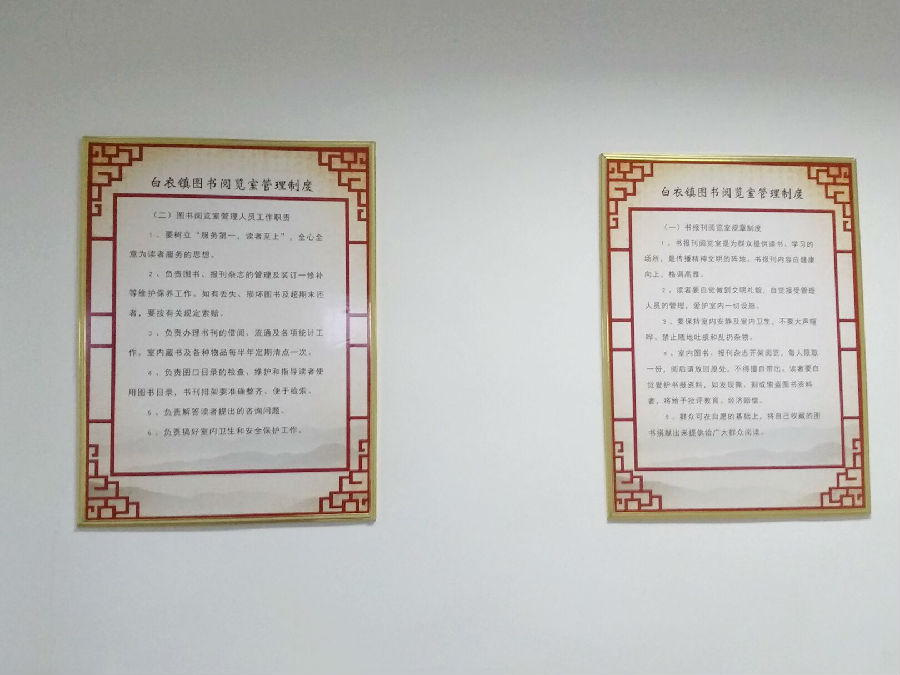 白衣镇图书阅览室管理制度
（二）图书阅览室管理人员工作职责
1、要树立“服务第一，读者至上”，全心全
意为读者服务的思想。
2、负责图书、报刊杂志的管理及装订一修补
等维护保养工作。如有丢失、损坏图书及超期未还
者，要按有关规定索赔。
3、负责办理书刊的借阅、流通及各项统计工
作。室内藏书及各种物品每半年定期清点一次。
4、负责图口目录的检查、维护和指导读者使
用图书目录，书刊排架要准确整齐、便于检索。
5、负责解答读者提出的咨询问题。
6、负责搞好室内卫生和安全保护工作。
白衣镇图书阅览室管理制度
（一）书报刊阅览室规章制度
1、书报刊阅览室是为群众提供读书、学习的
场所，是传播精神文明的阵地。书报刊内容应健康
向上，格调高雅。
2、读者要自觉做到文明礼貌，自觉接受管理
人员的管理，爱护室内一切设施。
3、要保持室内安静及室内卫生，不要大声喧
哗，禁止随地吐痰和乱扔杂物。
4、室内图书、报刊杂志开架阅览，每人限取
一份，阅后请放回原处，不得擅自带出。读者要自
觉爱护书报资料，如发现撕、割或偷盗图书资料
者，将给予批评教育、经济赔偿。
5、群众可在自愿的基础上，将自己收藏的图
书捐献出来提供给广大群众阅读。